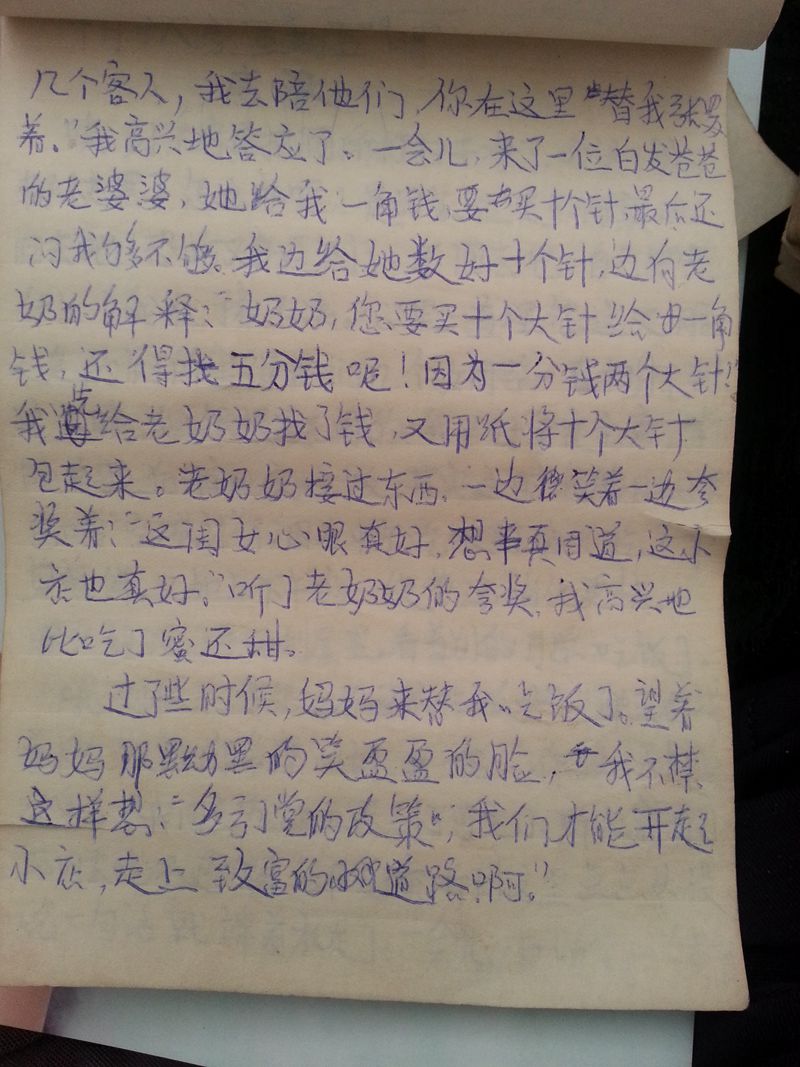 几个客人，我去陪他们，你在这里替我张罗
着。”我高兴地答应了。一会儿，来了一位白发苍苍
的老婆婆，她给我一角钱，要买十个针，最后还
问我够不够。我边给她数好十个针，边向老
奶奶解释：“奶奶，您要买十个大针给一角
钱，还得找五分钱呢！因为一分钱两个大针！”
我先给老奶奶找了钱，又用纸将十个大针
包起来。老奶奶接过东西，一边笑着一边夸
奖着：“这闺女心眼真好，想事真周道，这小
店也真好。”听了老奶奶的夸奖，我高兴地
比吃了蜜还甜。
过了些时候，妈妈来替我吃饭了。望着
妈妈那黝黑的笑盈盈的脸，我不禁
这样想：“多亏党的政策，我们才能开起
小店，走上致富的道路啊。”